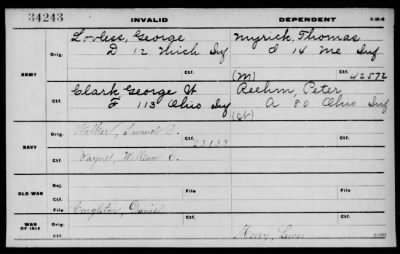 34243 INVALID DEPENDENT 3-35-6
Lovless, George Myrick, Thomas
Orig. D 12 Mich Inf d 14 Me Inf
ARMY Ctf. (M) Ctf. 42572
Clark George H Reehm, Peter
Orig. F 113 Ohio Inf A 80 Ohio Inf
Ctf.
Walker, Samuel
Orig.
NAVY Ctf.
Wagner, William C.
Ctf.
Ctf. File File
OLD WAR
Congleton, David
Orig. Ctf.
WAR OF 1812 Ctf.
Henry,